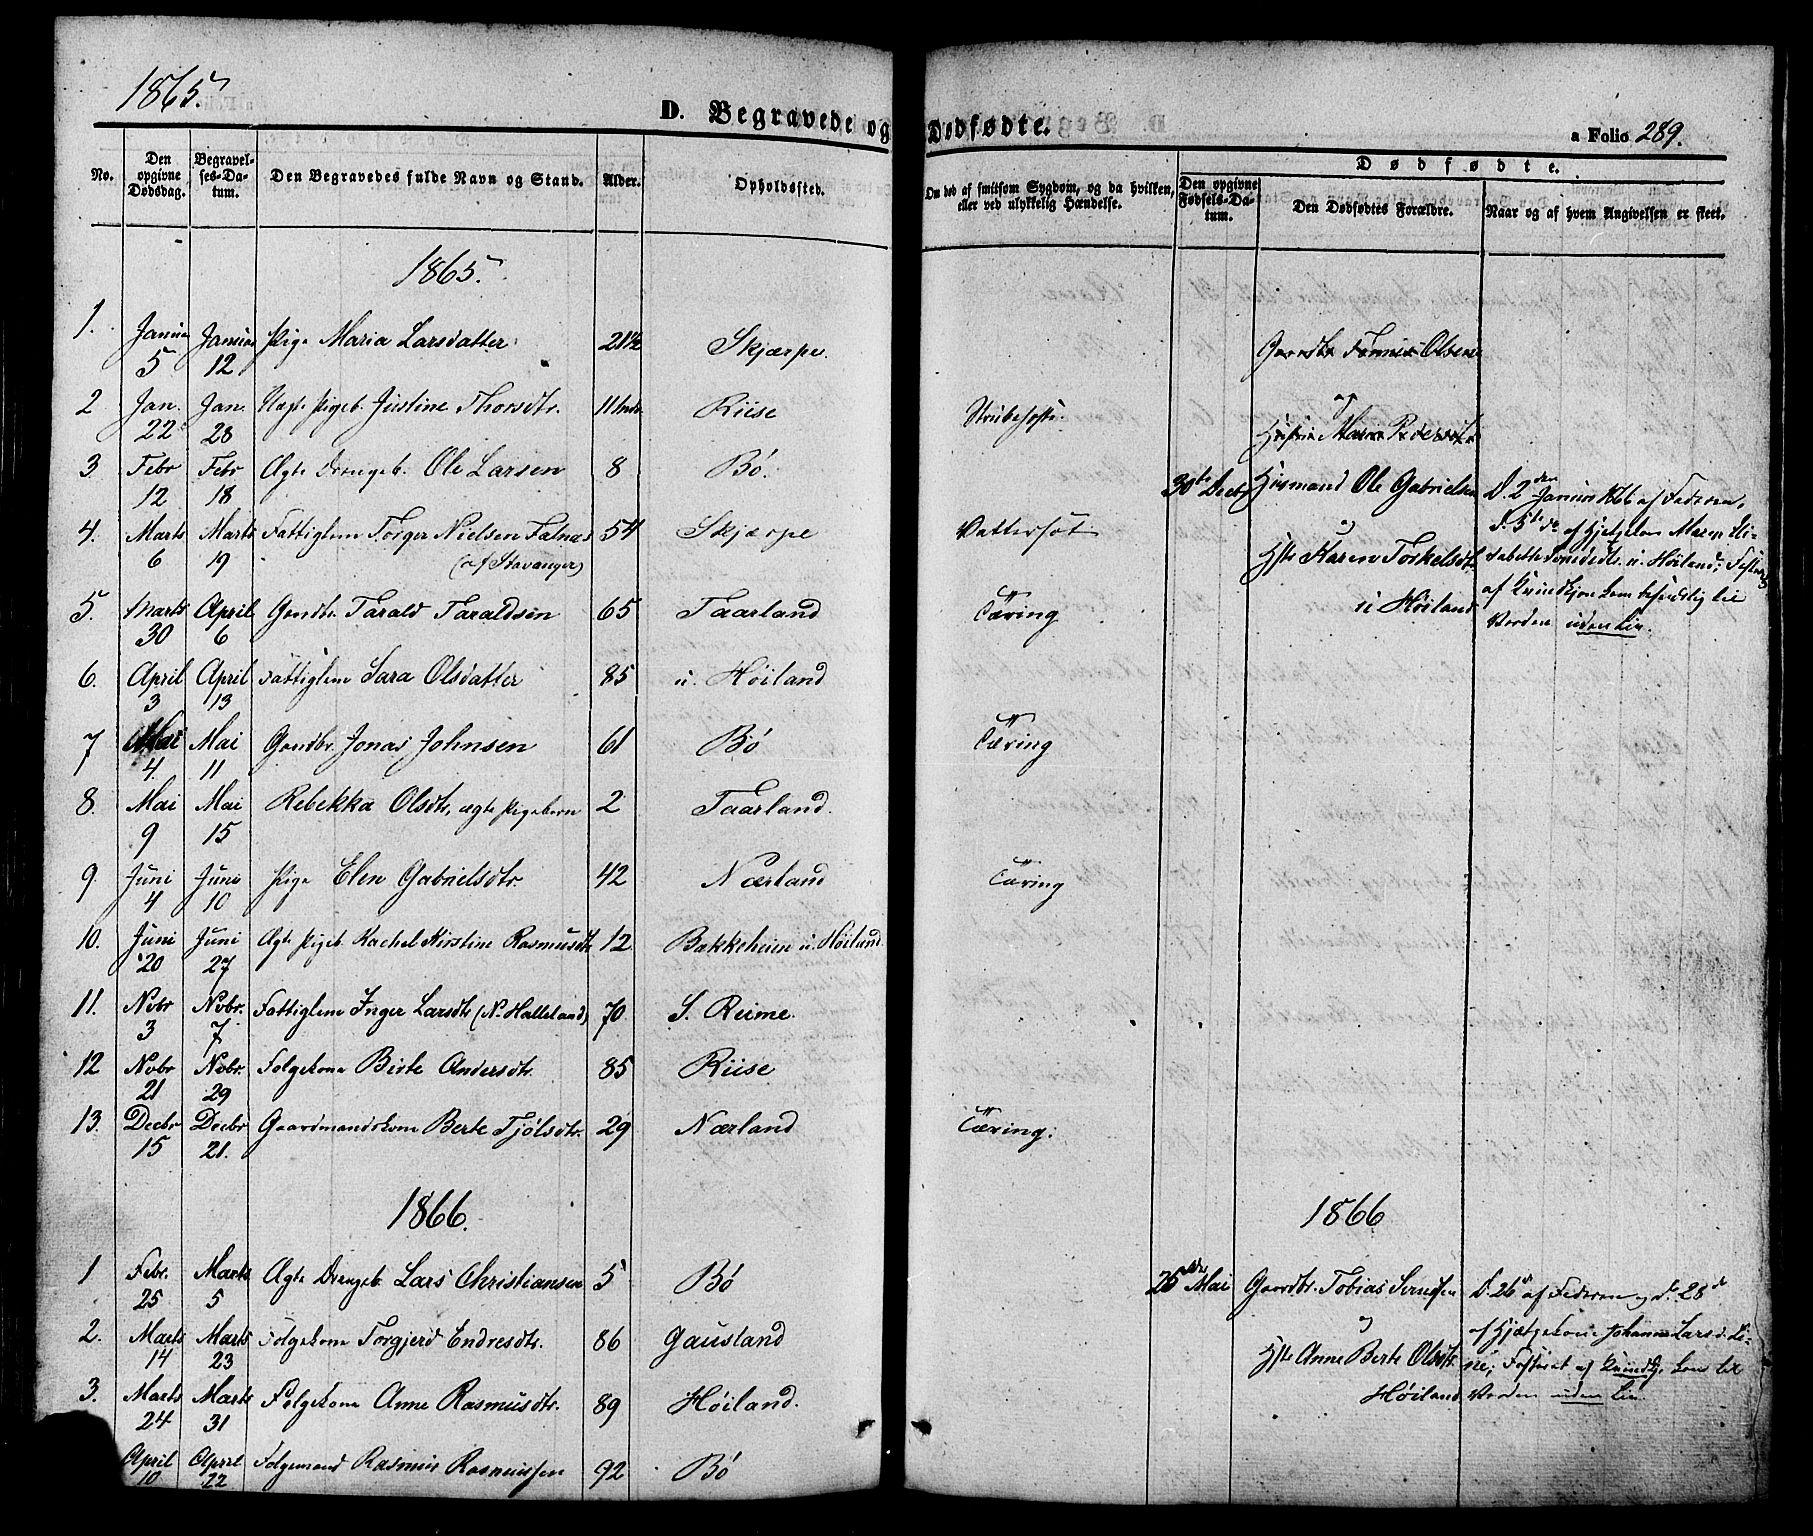 1865.
D. Begravede og Dødfødte.
a Folio 289.
No.
Den opgivne Dødsdag.
Begravelses-Datum.
Den Begravedes fulde Navn og Stand.
Alder.
Opholdssted.
Om død af smitsom Sygdom, og da hvilken, eller ved ulykkelig Hændelse.
Dødfødte.
Den opgivne Fødsels-Datum.
Den Dødfødtes Forældre.
Naar og af hvem Angivelsen er skeet.
1865.
1. Januar 5 Januar 12 Pige Maria Larsdatter 21½ Skjærpe.
2 Jan. 22 Jan. 28 Pigeb. Justine Thorsdtr. 11 Riise Strubehoste.
3 Febr 12 Febr 18 Ægte Drengeb. Ole Larsen 8 Bø.
4. Marts 6 Marts 19 Fattiglem Torger Nielsen Falnæs 54 Skjærpe Vattersot
(af Stavanger)
5. Marts 30 April 6 Gaardbr. Tarald Taraldsen 65 Taarland Tæring
6. April 3 April 13 Fattiglem Sara Olsdatter 85 u. Høiland
7 Mai 4 Mai 11 Gaardbr. Jonas Johnsen 61 Bø Tæring
8. Mai 9 Mai 15 Rebekka Olsdtr, ægte Pigebarn 2 Taarland.
9. Juni 4 Juni 10 Pige Elen Gabrielsdtr. 42 Nærland Tæring
10. Juni 20 Juni 27 Ægte Pigeb. Rachel Kirstine Rasmusdtr 12 Bakkeheien u. Høiland.
11. Novbr 3 Novbr. 7 Fattiglem Inger Larsdtr (N. Halleland) 70 S. Reime.
12 Novbr 21 Novbr. 29 Folgekone Birte Andersdtr. 85 Riise
13. Decbr 15 Decbr 21. Gaardmandskone Berte Tjølsdtr. 29 Nærland Tæring.
Olsen
og
30te Decbr Huusmand Ole Gabrielsen
og
Hstr Karen Torkelsdtr.
u Høiland
D. 2den Januar 1866 af Faderen,
d. 5te af Hjelpekon Maren
u. Høiland; Fosteret
af Kvindkjøn kom
Verden uden Liv.
1866.
1 Febr. 25 Marts 5 Ægte Drengeb. Lars Christiansen 5 Bø
2. Marts 14 Marts 23 Folgekone Torgjerd Endresdtr. 86 Gausland
3. Marts 24 Marts 31 Folgekone Anne Rasmusdtr. 89 Høiland.
April 10 April 22 Folgemand Rasmus Rasmussen 92 Bø
1866
25de Mai Gaardbr. Tobias
og
Hstr Anne Berte Olsdtr.
Høiland
D. 26 af Faderen og d. 28de
af Hjælpekone Johanne Larsd.
Fosteret af Kvindkj. kom til
Verden uden Liv.